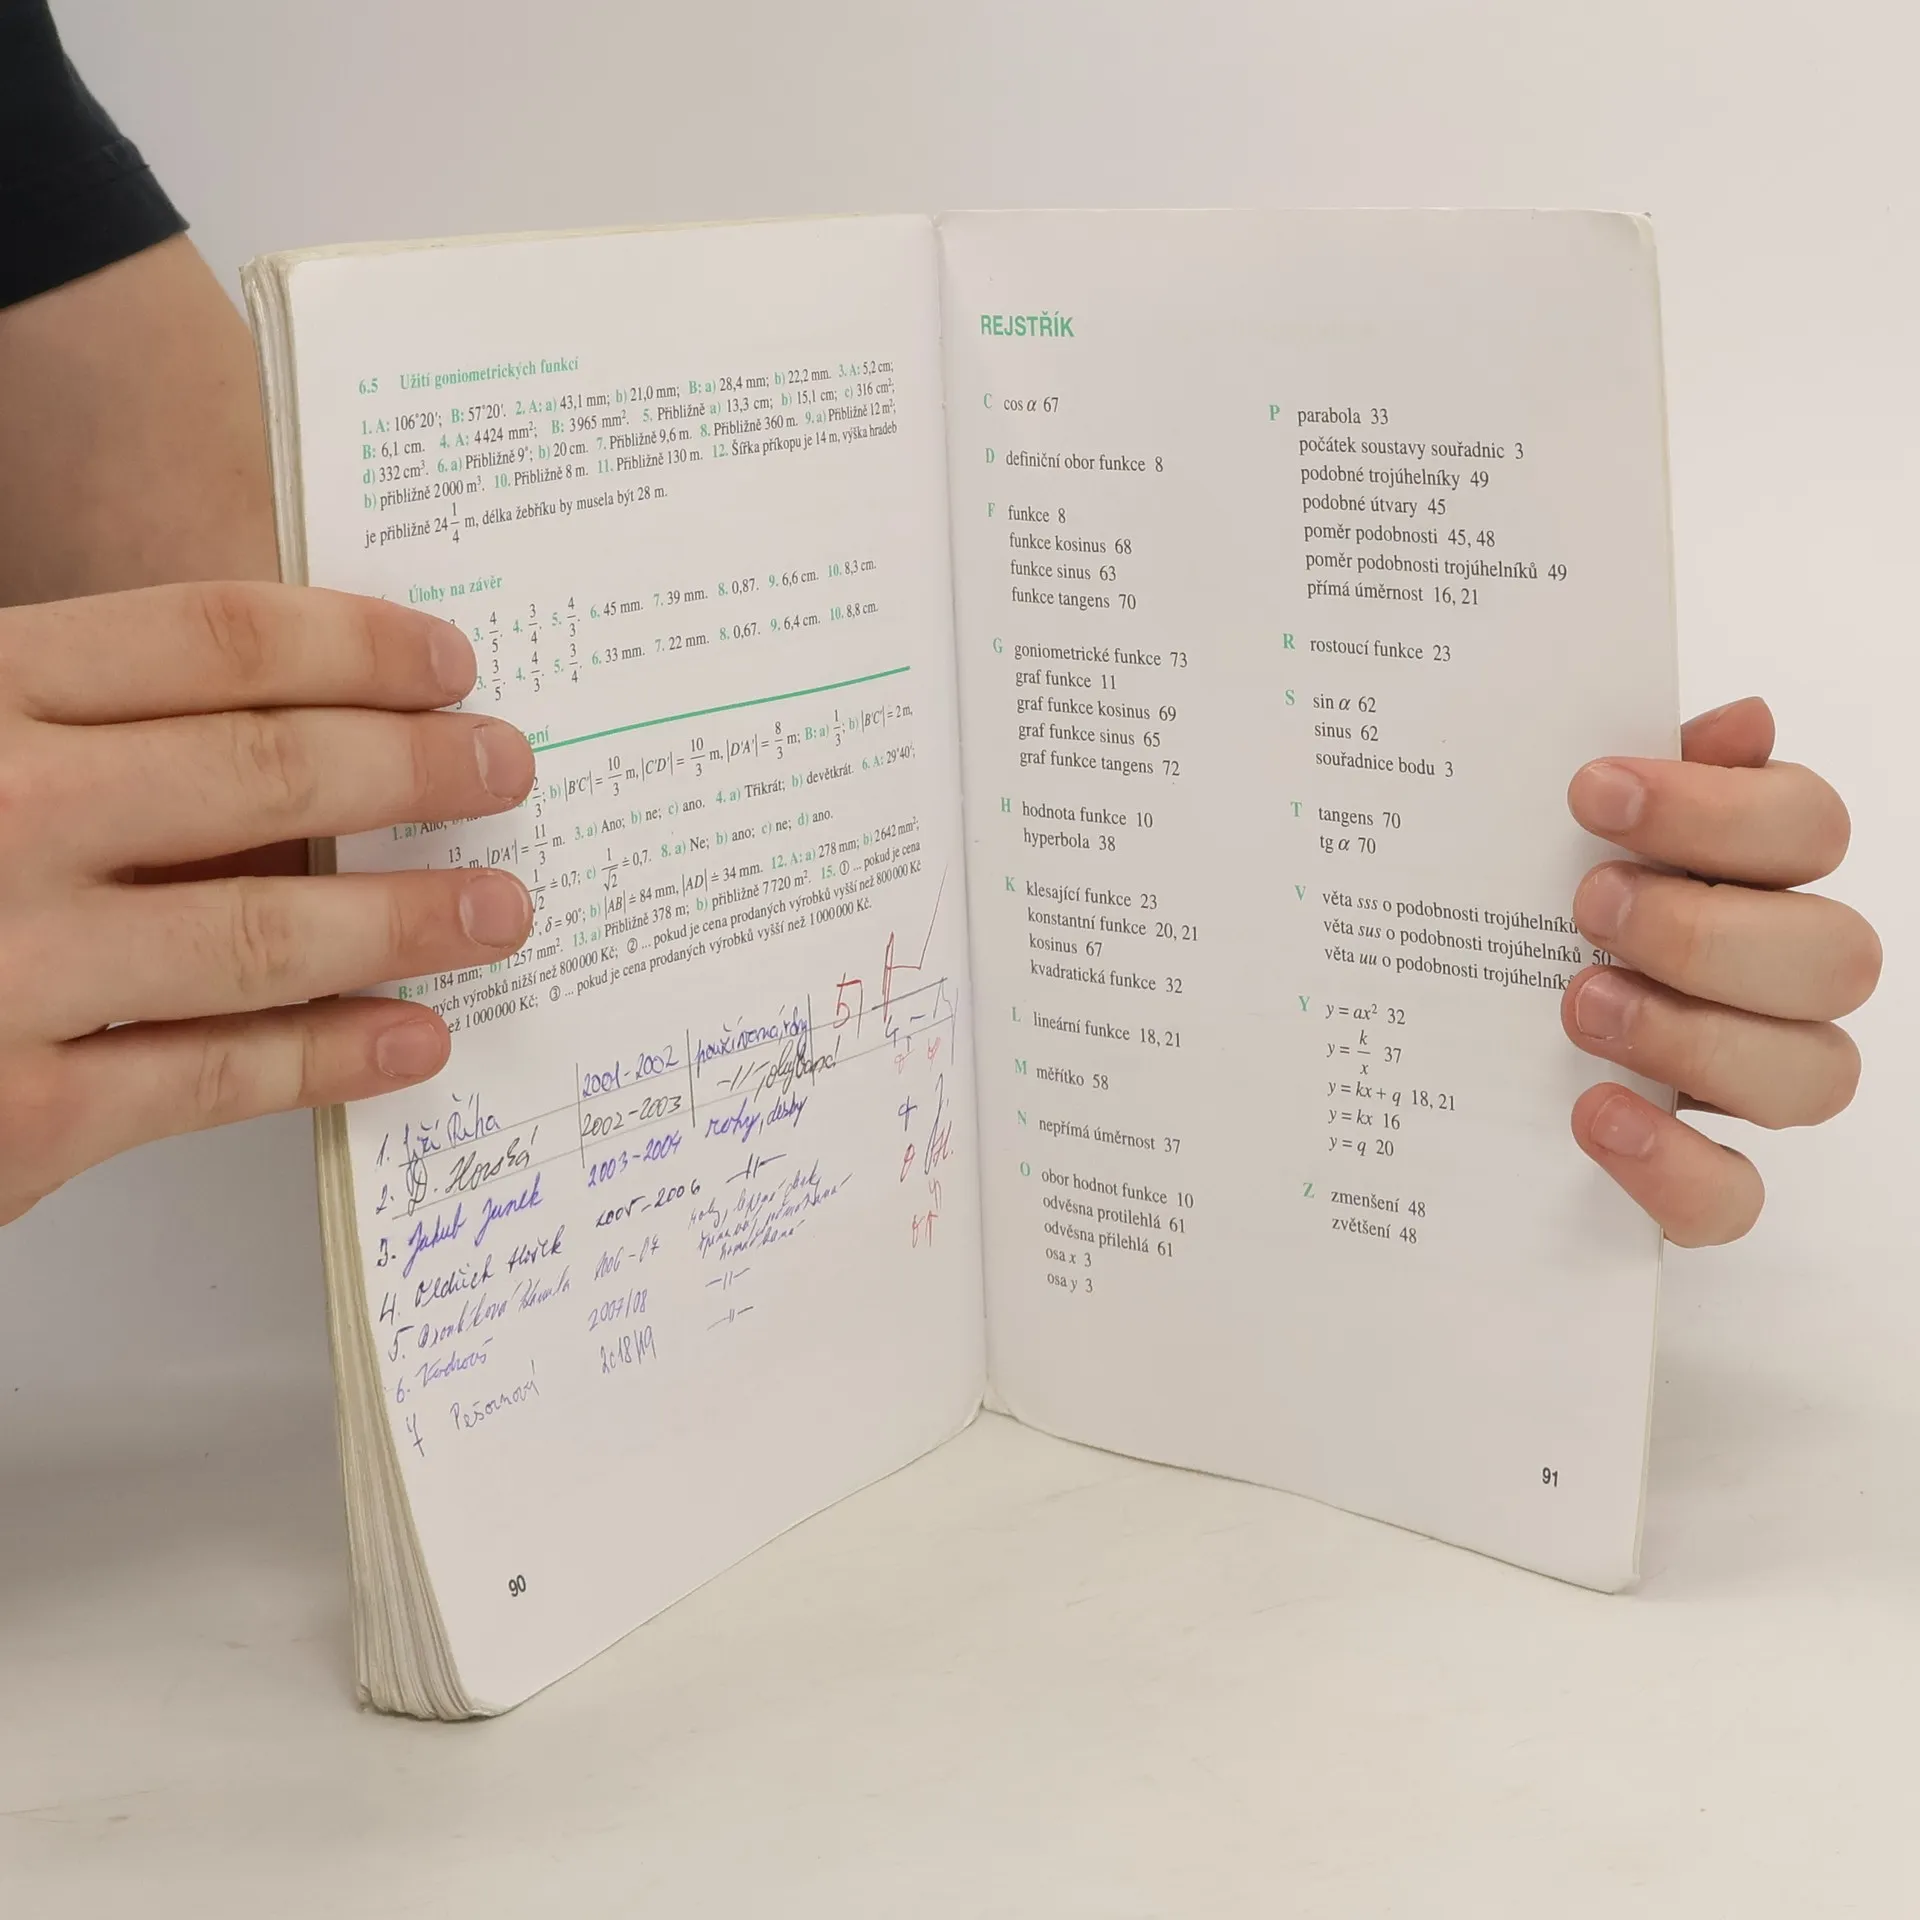 6.5 Užití goniometrických funkcí
1. A: 106°20′; B: 57°20′. 2. A: a) 43,1 mm; b) 21,0 mm; B: a) 28,4 mm; b) 22,2 mm. 3. A: 5,2 cm;
B: 6,1 cm. 4. A: 4 424 mm²; B: 3 965 mm². 5. Přibližně a) 13,3 cm; b) 15,1 cm; c) 316 cm²;
d) 332 cm³. 6. a) Přibližně 9°; b) 20 cm. 7. Přibližně 9,6 m. 8. Přibližně 360 m. 9. a) Přibližně 12 m²;
b) přibližně 2 000 m³. 10. Přibližně 8 m. 11. Přibližně 130 m. 12. Šířka příkopu je 14 m, výška hradeb
je přibližně 24 1/4 m, délka žebříku by musela být 28 m.
Úlohy na závěr
3. 4/5. 4. 3/4. 5. 4/3. 6. 45 mm. 7. 39 mm. 8. 0,87. 9. 6,6 cm. 10. 8,3 cm.
3. 3/5. 4. 4/3. 5. 3/4. 6. 33 mm. 7. 22 mm. 8. 0,67. 9. 6,4 cm. 10. 8,8 cm.
1. a) Ano; 2/3; b) |B′C′| = 10/3 m, |C′D′| = 10/3 m, |D′A′| = 8/3 m; B: a) 1/3; b) |B′C′| = 2 m,
13 m, |D′A′| = 11/3 m. 3. a) Ano; b) ne; c) ano. 4. a) Třikrát; b) devětkrát. 6. A: 29°40′;
1/√2 ≐ 0,7; c) 1/√2 ≐ 0,7. 8. a) Ne; b) ano; c) ne; d) ano.
δ = 90°; b) |AB| ≐ 84 mm, |AD| ≐ 34 mm. 12. A: a) 278 mm; b) 2 642 mm²;
B: a) 184 mm; b) 1 257 mm². 13. a) Přibližně 378 m; b) přibližně 7 720 m². 15. ① ... pokud je cena
výrobků nižší než 800 000 Kč; ② ... pokud je cena prodaných výrobků vyšší než 800 000 Kč
než 1 000 000 Kč; ③ ... pokud je cena prodaných výrobků vyšší než 1 000 000 Kč.
1. Jiří Říha 2001-2002 používaná, rohy 5
2. D. Horská 2002-2003 -II-
3. Jakub Junek 2003-2004 rohy, desky
4. Oldřich 2005-2006 -II-
5. 2006-07
6. 2007/08 -II-
7 2018/19 -II-
90
REJSTŘÍK
C cos α 67
D definiční obor funkce 8
F funkce 8
funkce kosinus 68
funkce sinus 63
funkce tangens 70
G goniometrické funkce 73
graf funkce 11
graf funkce kosinus 69
graf funkce sinus 65
graf funkce tangens 72
H hodnota funkce 10
hyperbola 38
K klesající funkce 23
konstantní funkce 20, 21
kosinus 67
kvadratická funkce 32
L lineární funkce 18, 21
M měřítko 58
N nepřímá úměrnost 37
O obor hodnot funkce 10
odvěsna protilehlá 61
odvěsna přilehlá 61
osa x 3
osa y 3
P parabola 33
počátek soustavy souřadnic 3
podobné trojúhelníky 49
podobné útvary 45
poměr podobnosti 45, 48
poměr podobnosti trojúhelníků 49
přímá úměrnost 16, 21
R rostoucí funkce 23
S sin α 62
sinus 62
souřadnice bodu 3
T tangens 70
tg α 70
V věta sss o podobnosti trojúhelníků
věta sus o podobnosti trojúhelníků 50
věta uu o podobnosti
Y y = ax² 32
y = k/x 37
y = kx + q 18, 21
y = kx 16
y = q 20
Z zmenšení 48
zvětšení 48
91